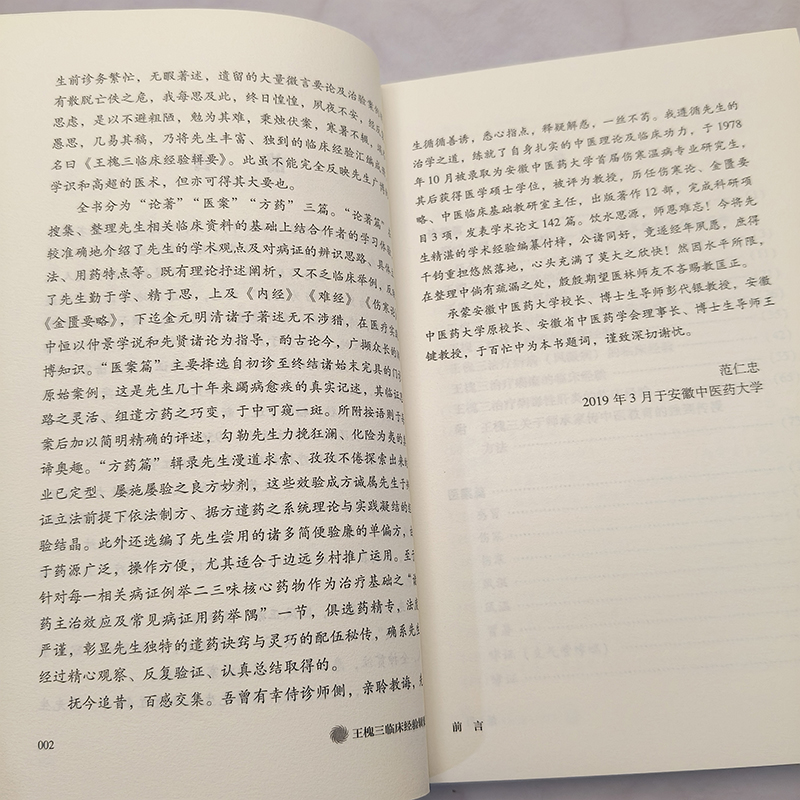 生前诊务繁忙，无暇著述，遗留的大量微言要论及治验案例
有散脱亡佚之危，我每思及此，终日惶惶，夙夜不安，经
思虑，是以不避粗陋，勉为其难，秉烛伏案，寒暑不辍，竭
愚思，几易其稿，乃将先生丰富、独到的临床经验汇编成
名曰《王槐三临床经验辑要》。此虽不能完全反映先生广博
学识和高超的医术，但亦可得其大要也。
全书分为“论著”“医案”“方药”三篇。“论著篇”
搜集、整理先生相关临床资料的基础上结合作者的学习体
较准确地介绍了先生的学术观点及对病证的辨识思路、具体
法、用药特点等。既有理论抒述阐析，又不乏临床举例，反
了先生勤于学、精于思，上及《内经》《难经》《伤寒论
《金匮要略》，下迄金元明清诸子著述无不涉猎，在医疗实
中恒以仲景学说和先贤诸论为指导，酌古论今，广撷众长的
博知识。“医案篇”主要择选自初诊至终结诸始末完具的门
原始案例，这是先生几十年来蠲病愈疾的真实记述，其临证
路之灵活、组遣方药之巧变，于中可窥一斑。所附按语则于
案后加以简明精确的评述，勾勒先生力挽狂澜、化险为夷的
谛奥趣。“方药篇”辑录先生漫道求索、孜孜不倦探索出来
业已定型、屡施屡验之良方妙剂，这些效验成方诚属先生于
证立法前提下依法制方、据方遣药之系统理论与实践凝结的
验结晶。此外还选编了先生尝用的诸多简便验廉的单偏方，
于药源广泛，操作方便，尤其适合于边远乡村推广运用。至
针对每一相关病证例举二三味核心药物作为治疗基础之“
药主治效应及常见病证用药举隅”一节，俱选药精专，法
严谨，彰显先生独特的遣药诀窍与灵巧的配伍秘传，确系先
经过精心观察、反复验证、认真总结取得的。
抚今追昔，百感交集。吾曾有幸侍诊师侧，亲聆教诲，
002
王槐三临床经验辑
生循循善诱，悉心指点，释疑解惑，一丝不苟。我遵循先生的
治学之道，练就了自身扎实的中医理论及临床功力，于 1978
年 10 月被录取为安徽中医药大学首届伤寒温病专业研究生，
其后获得医学硕士学位，被评为教授，历任伤寒论、金匮要
略、中医临床基础教研室主任，出版著作 12 部，完成科研项
目 3 项，发表学术论文 142 篇。饮水思源，师恩难忘！今将先
生精湛的学术经验编纂付梓，公诸同好，竟遂经年夙愿，庶得
千钧重担悠然落地，心头充满了莫大之欣快！然因水平所限，
在整理中倘有疏漏之处，殷殷期望医林师友不吝赐教匡正。
承蒙安徽中医药大学校长、博士生导师彭代银教授，安徽
中医药大学原校长、安徽省中医药学会理事长、博士生导师王
键教授，于百忙中为本书题词，谨致深切谢忱。
范仁忠
2019 年 3 月于安徽中医药大学
前 言